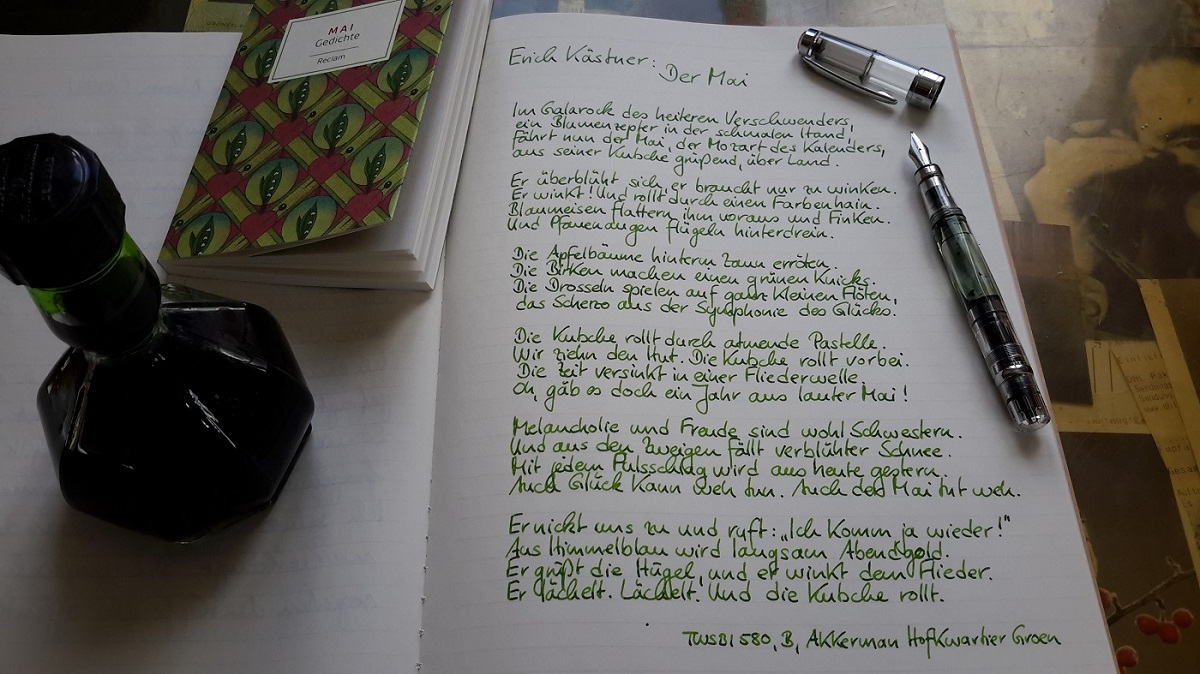 MAI
Gedichte
Reclam
Erich Kästner:
Der Mai
Im Galarock des heiteren Verschwenders,
ein Blumenzepter in der schmalen Hand,
fährt nun der Mai, der Mozart des Kalenders,
aus seiner Kutsche grüßend, über Land.
Er überblüht sich, er braucht nur zu winken.
Er winkt! Und rollt durch einen Farbenhain.
Blaumeisen flattern ihm voraus und Finken.
Und Pfauenaugen flügeln hinterdrein.
Die Apfelbäume hinterm Zaun erröten.
Die Birken machen einen grünen Knicks.
Die Drosseln spielen auf ganz kleinen Flöten,
das Scherzo aus der Symphonie des Glücks.
Die Kutsche rollt durch atmende Pastelle.
Wir ziehn den Hut. Die Kutsche rollt vorbei.
Die Zeit versinkt in einer Fliederwelle.
Oh, gäb es doch ein Jahr aus lauter Mai!
Melancholie und Freude sind wohl Schwestern.
Und aus den Zweigen fällt verblühter Schnee.
Mit jedem Pulsschlag wird aus heute gestern.
Auch Glück kann weh tun. Auch der Mai tut weh.
Er nickt uns zu und ruft: „Ich komm ja wieder!"
Aus Himmelblau wird langsam Abendgold.
Er grüßt die Hügel, und er winkt dem Flieder.
Er lächelt. Lächelt. Und die Kutsche rollt.
TWSBI 580, B, Akkerman Hofkwartier Groen